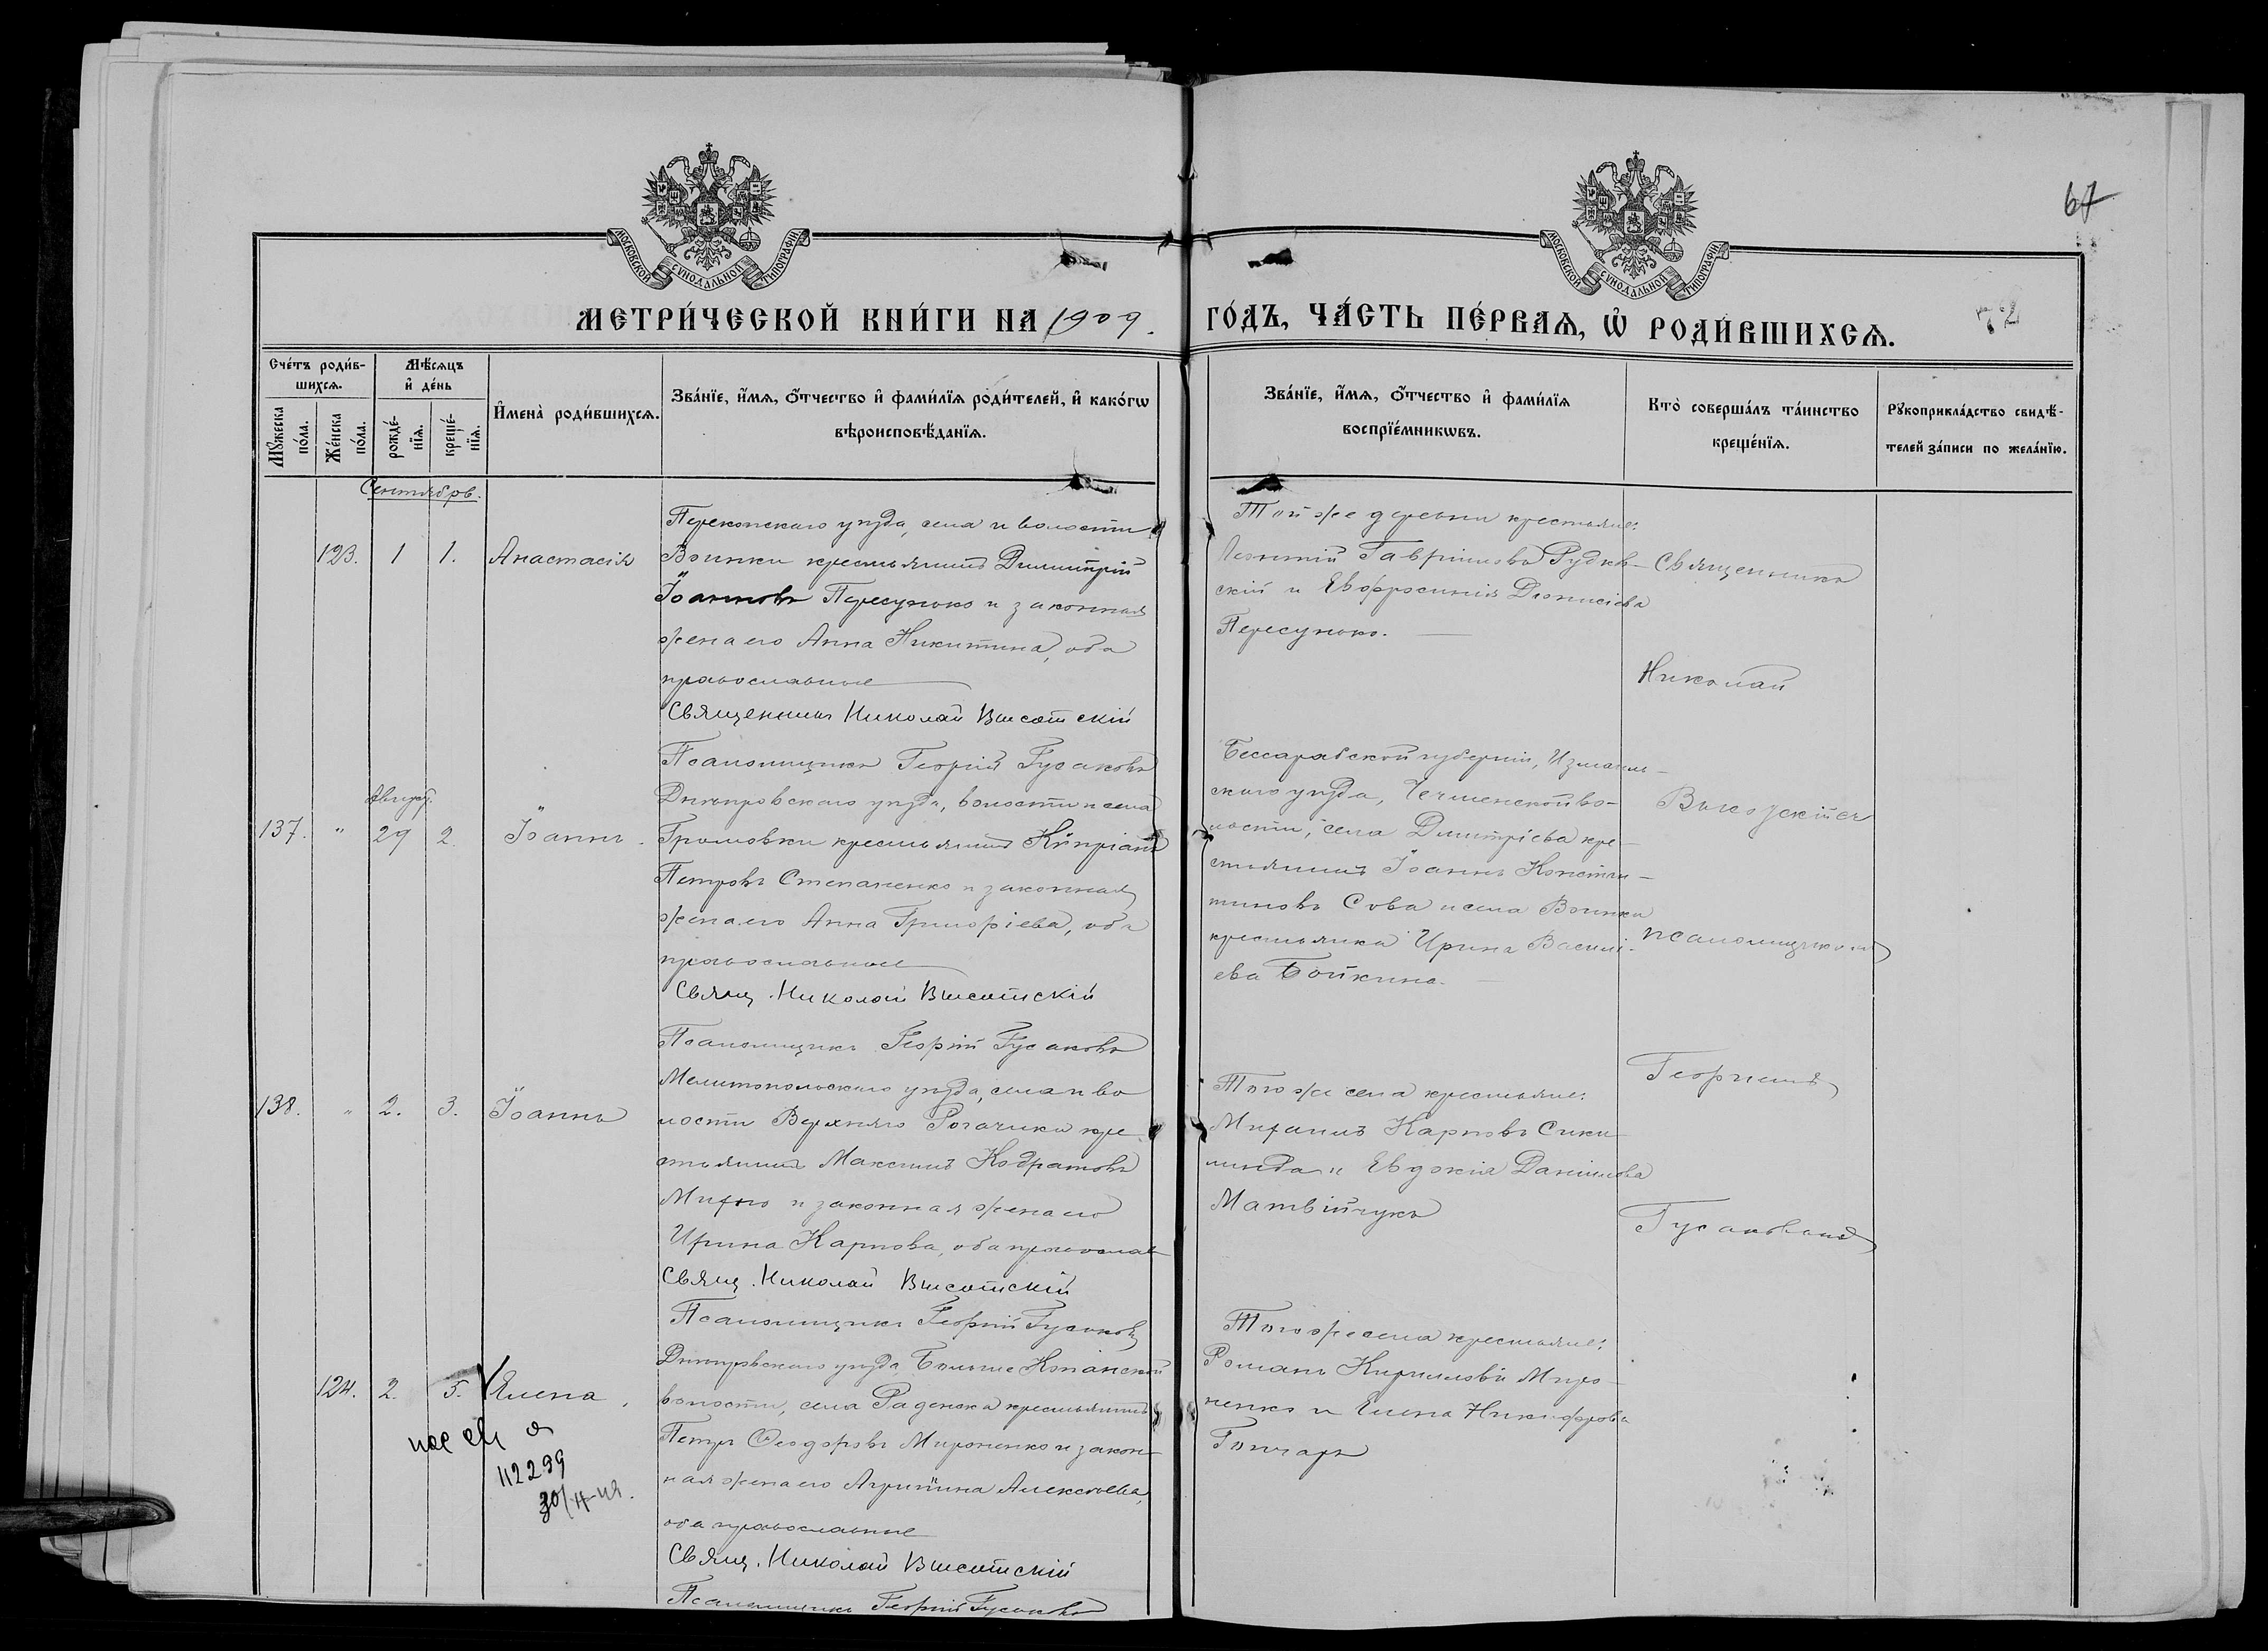 67
МОСКОВСКОЙ СѴНОДАЛЬНОЙ ТИПОГРАФІИ
МОСКОВСКОЙ СѴНОДАЛЬНОЙ ТИПОГРАФІИ
МЕТРИ́ЧЕСКОЙ КНИ́ГИ НА 1909.
ГО́ДЪ, ЧА́СТЬ ПЕ́РВАѦ, Ѡ РОДИ́ВШИХСѦ.
72
Сче́тъ роди́в-
шихсѧ.
Мꙋжеска
по́ла.
Же́нска
по́ла.
Мѣ́сѧцъ
и҆ де́нь
рожде́-
нїѧ.
креще́-
нїѧ.
И҆мена̀ роди́вшихсѧ.
Зва́нїе, и҆́мѧ, ѻ҆́тчество и҆ фами́лїѧ роди́телей, и҆ како́гѡ
вѣроисповѣ́данїѧ.
Зва́нїе, и҆́мѧ, ѻ҆́тчество и҆ фами́лїѧ
воспрїе́мникѡвъ.
Кто̀ соверша́лъ та́инство
креще́нїѧ.
Рꙋкоприкла́дство свидѣ́-
телей за́писи по жела́нїю.
Сентябрь.
123. 1 1. Анастасія
Перекопскаго уѣзда, села и волости
Воинки крестьянинъ Димитрій
Іоанновъ Пересунько и законная
жена его Анна Никитина, оба
православные
Священникъ Николай Высотскій
Псаломщикъ Георгій Гусаковъ
Той же деревни крестьяне:
Леонтій Гавріиловъ Рудков-
скій и Евфросинія Діонисіева
Пересунько.
Священникъ
Николай
Август.
137. " 29 2. Іоаннъ.
Днѣпровскаго уѣзда, волости и села
Громовки крестьянинъ Кипріанъ
Петровъ Степаненко и законная
жена его Анна Григоріева, оба
православные
Свящ. Николай Высотскій
Псаломщикъ Георгій Гусаковъ
Бессарабской губерніи, Измаиль-
скаго уѣзда, во-
лости, села Дмитріева кре-
стьянинъ Іоаннъ Констан-
тиновъ Сова и села Воинки
крестьянка Ирина Василі-
ева Бойкина.
псаломщикомъ
138. " 2. 3. Іоаннъ
Мелитопольскаго уѣзда, села и во
лости Верхняго Рогачика кре
стьянинъ Максимъ Кодратовъ
и законная жена его
Ирина Карпова, оба православ
Свящ. Николай Высотскій
Псаломщикъ Георгій Гусаковъ
Того же села крестьяне:
Михаилъ Карповъ
и Евдокія Даніилова
Матвійчукъ
Георгіемъ
Гусаковымъ
124. 2. 5. Елена.
112299
Днѣпровскаго уѣзда, Больше Копанской
волости, села Раденска крестьянинъ
Петръ Ѳеодоровъ Мироненко и закон-
ная жена его Агрипина Алексѣева,
оба православные
Свящ. Николай Высотскій
Псаломщикъ Георгій Гусаковъ
Того же села крестьяне:
Романъ Кирилловъ Миро-
ненко и Елена Никифорова
Гончаръ